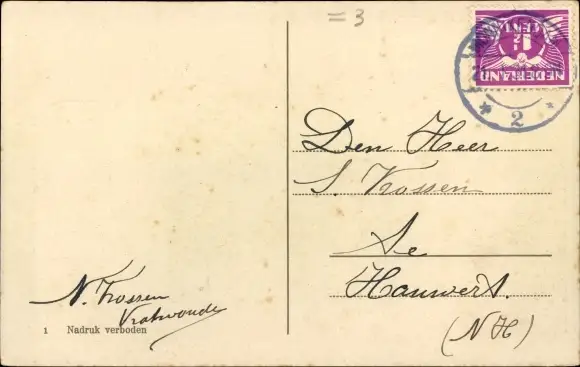 = 3
NEDERLAND
1½
CENT
2
Den Heer
S. Kossen
Te
Hauwert.
(N H)
N. Kossen
1 Nadruk verboden